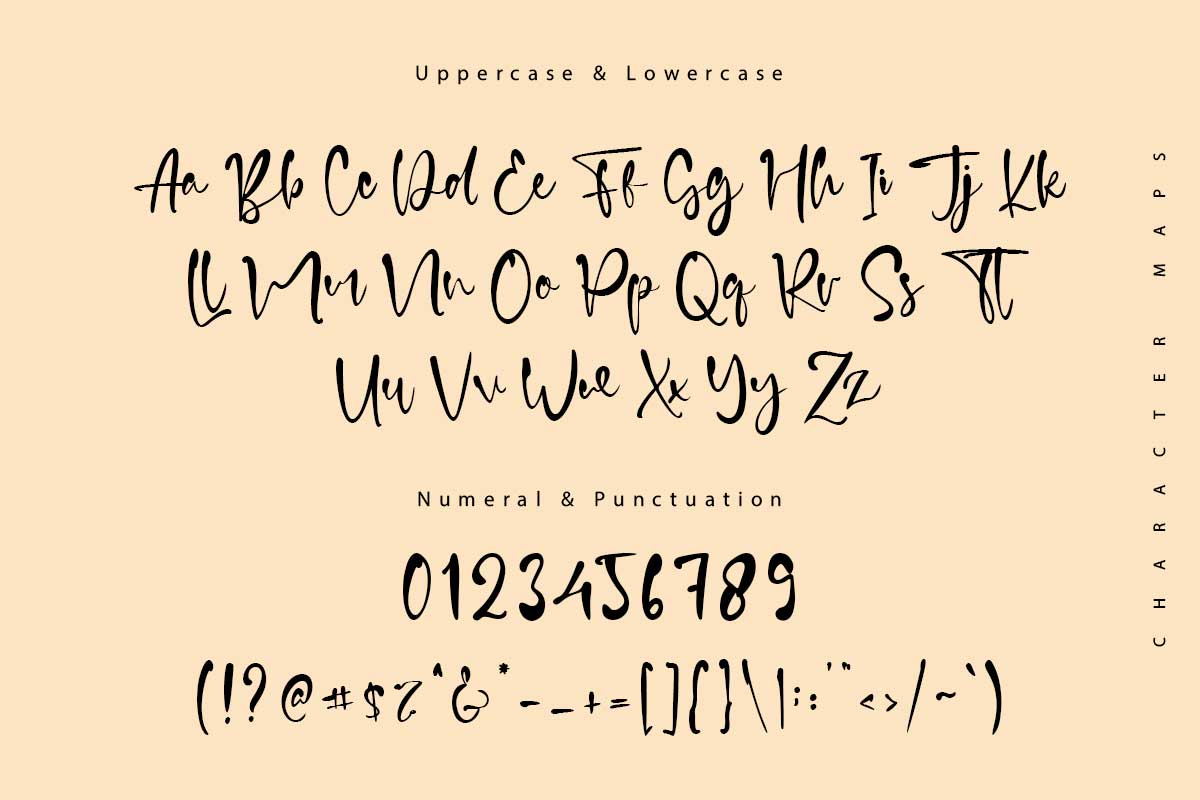 Uppercase & Lowercase
Aa Bb Cc Dd Ee Ff Gg Hh Ii Jj Kk
Ll Mm Nn Oo Pp Qq Rr Ss Tt
Uu Vv Ww Xx Yy Zz
Numeral & Punctuation
0123456789
(!?@#$%^&*-_+=[]{}\|;:'"<>/~`)
CHARACTER MAPS